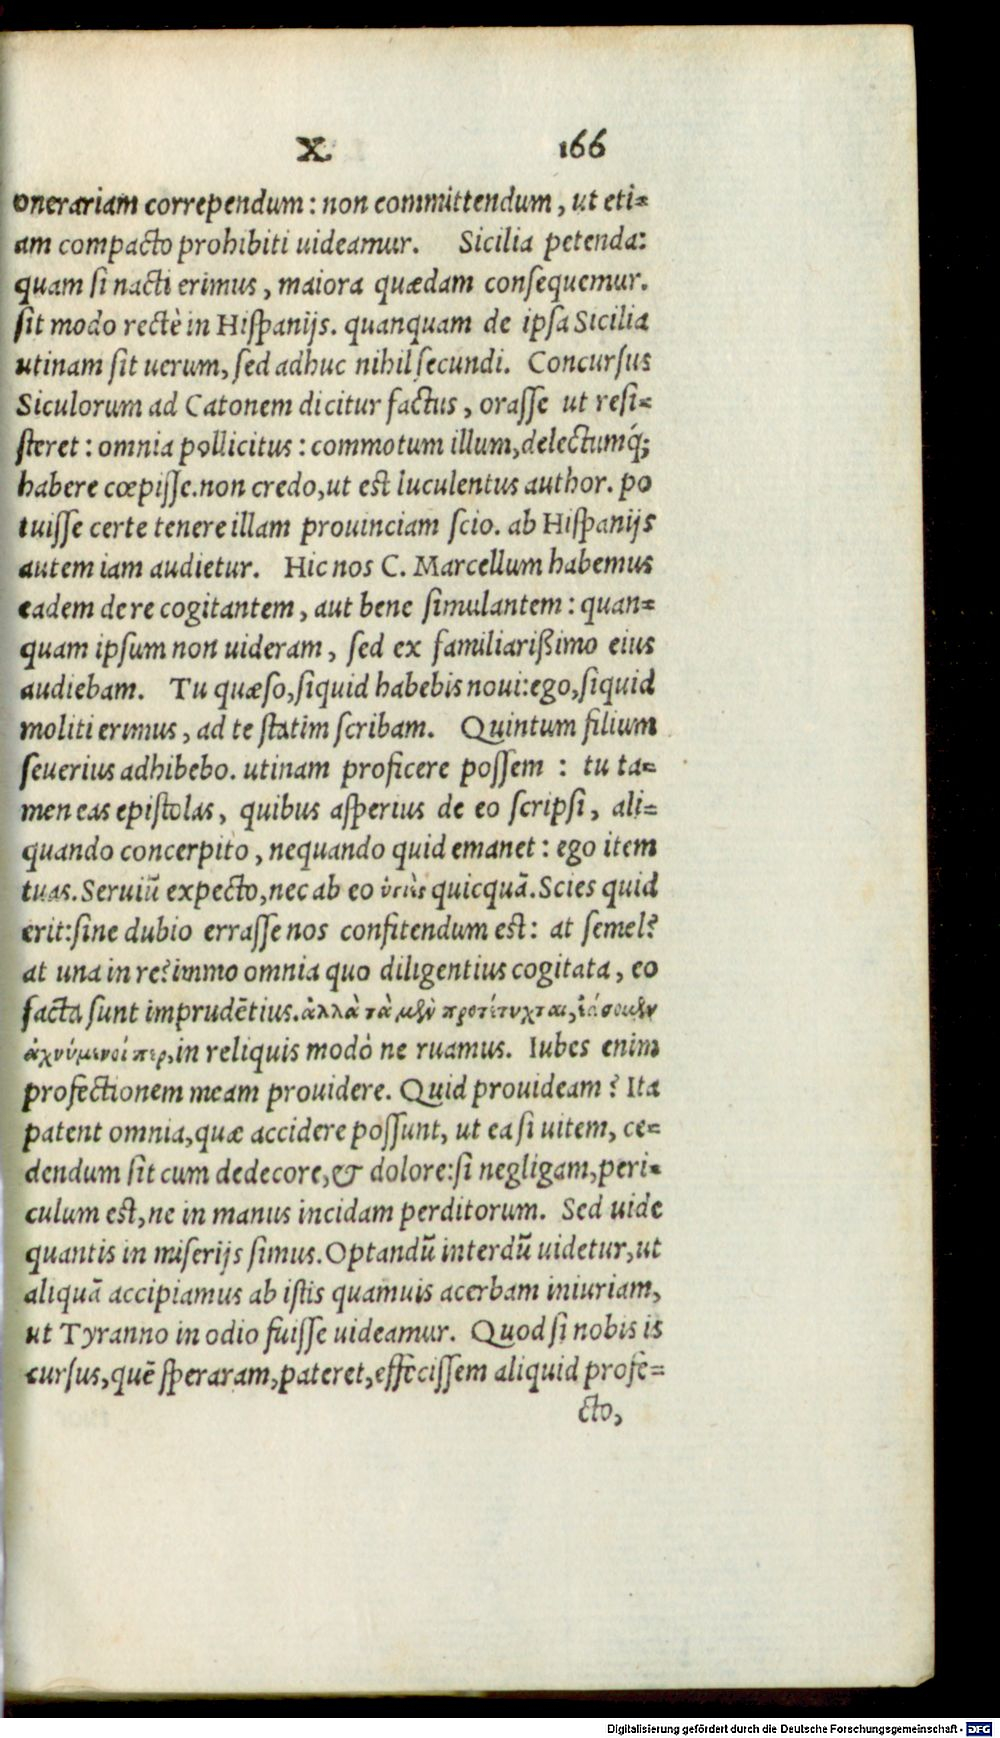 X. 166
onerariam correpe̱ndum: non committendum, ut eti=
am compacto prohibiti uideamur. Sicilia petenda:
quam si nacti erimus, maiora quædam consequemur.
sit modo rectè in Hispanijs. quanquam de ipsa Sicilia
utinam sit uerum, sed adhuc nihil secundi. Concursus
Siculorum ad Catonem dicitur factus, orasse ut resi=
steret: omnia pollicitus: commotum illum, delectumq́;
habere cœpisse. non credo, ut est luculentus author. po
tuisse certe tenere illam prouinciam scio. ab Hispanijs
autem iam audietur. Hic nos C. Marcellum habemus
eadem de re cogitantem, aut bene simulantem: quan=
quam ipsum non uideram, sed ex familiarißimo eius
audiebam. Tu quæso, siquid habebis noui: ego, siquid
moliti erimus, ad te statim scribam. Quintum filium
seuerius adhibebo. utinam proficere possem: tu ta=
men eas epistolas, quibus asperius de eo scripsi, ali=
quando concerpito, nequando quid emanet: ego item
tuas. Seruiũ expecto, nec ab eo ὑγιὲς quicquã. Scies quid
erit: sine dubio errasse nos confitendum est: at semel?
at una in re? immo omnia quo diligentius cogitata, eo
facta sunt imprudẽtius. ἀλλὰ τὰ μὲν προτέτυχται, ἐάσομεν
ἀχνύμενοί περ, in reliquis modò ne ruamus. Iubes enim
profectionem meam prouidere. Quid prouideam? Ita
patent omnia, quæ accidere possunt, ut ea si uitem, ce=
dendum sit cum dedecore, & dolore: si negligam, peri=
culum est, ne in manus incidam perditorum. Sed uide
quantis in miserijs simus. Optandũ interdũ uidetur, ut
aliquã accipiamus ab istis quamuis acerbam iniuriam,
ut Tyranno in odio fuisse uideamur. Quod si nobis is
cursus, quẽ speraram, pateret, effecissem aliquid profe=
cto,
Digitalisierung gefördert durch die Deutsche Forschungsgemeinschaft - DFG